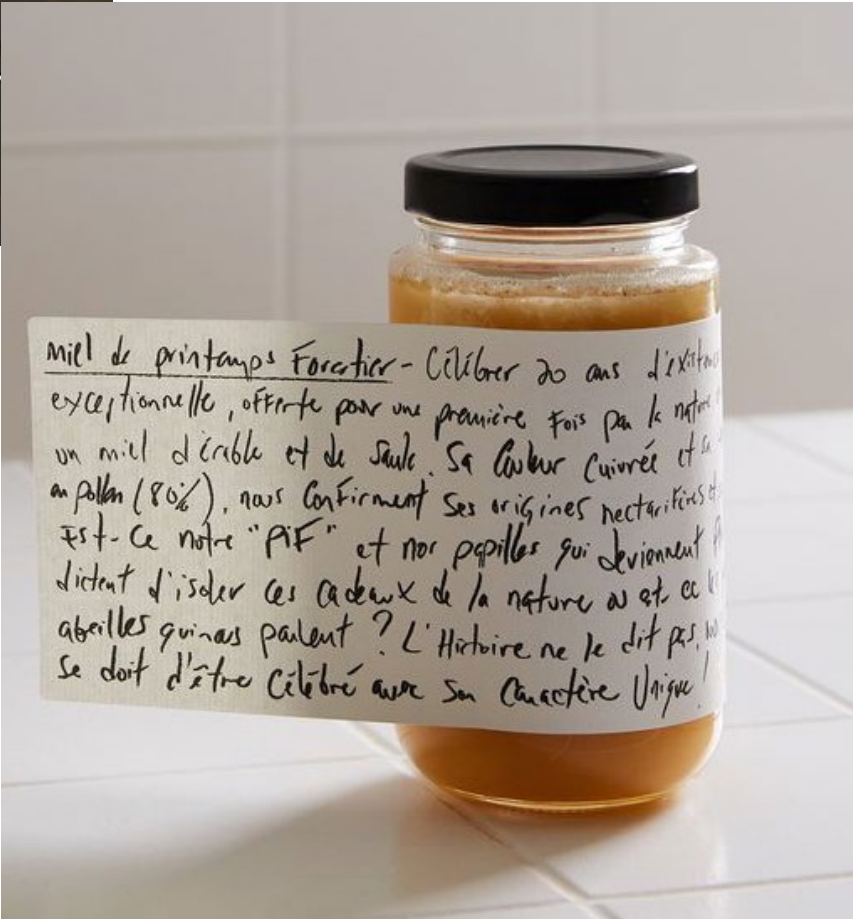 Miel de printemps Forestier - Célébrer 20 ans
exceptionnelle, offerte pour une première Fois par la nature
un miel d'érable et de Saule. Sa Couleur Cuivrée et sa
en pollen (80%), nous Confirment Ses origines nectarifères et
Est-Ce notre "PiF" et nos papilles qui deviennent
dictent d'isoler ces cadeaux de la nature ou est-ce les
abeilles qui nous parlent ? L'Histoire ne le dit pas,
Se doit d'être Célébré avec Son Caractère Unique !